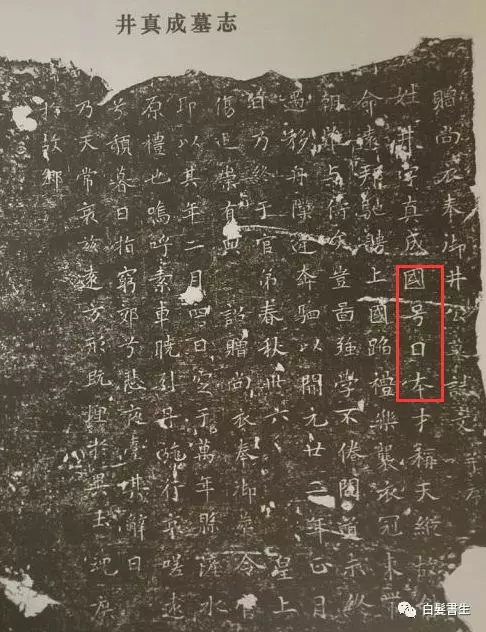 井真成墓志
贈尚衣奉御井公墓誌文并序
姓井字真成國号日本才稱天縱故能
命遠邦馳騁上國蹈禮樂襲衣冠束帶
朝難與儔矣豈圖強學不倦聞道未終
遇移舟隙逢奔駟以開元廿二年正月
日乃終于官弟春秋卅六 皇上
傷追崇有典 詔贈尚衣奉御葬令官
即以其年二月四日窆于萬年縣滻水
原禮也嗚呼素車曉引丹旐行哀嗟遠
兮頹暮日指窮郊兮悲夜臺其辭曰
乃天常哀茲遠方形既埋於異土魂庶
於故鄉
白髮書生